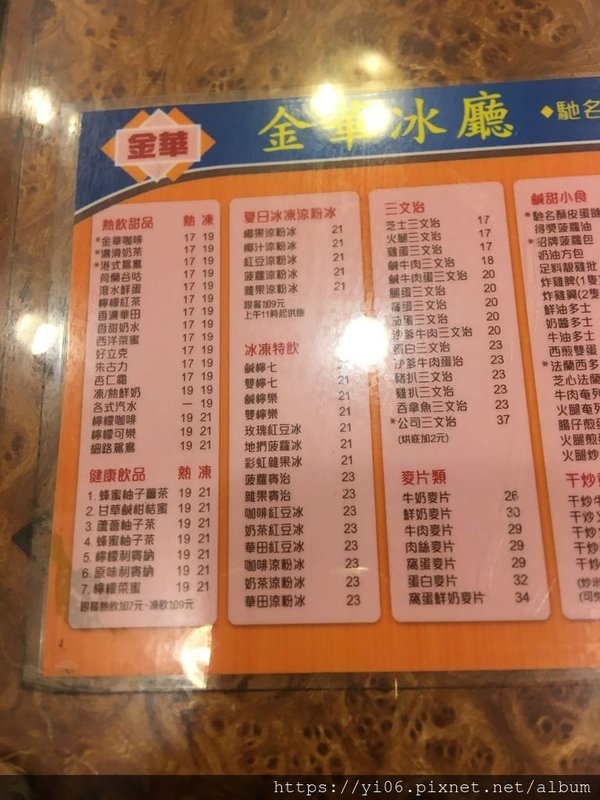 金華
金華冰廳
◆馳名
熱飲甜品 熱 凍
*金華咖啡 17 19
*濃滑奶茶 17 19
*港式鴛鴦 17 19
荷蘭谷咕 17 19
滾水鮮蛋 17 19
檸檬紅茶 17 19
香濃華田 17 19
香甜奶水 17 19
西洋菜蜜 17 19
好立克 17 19
朱古力 17 19
杏仁霜 17 19
凍/熱鮮奶 17 19
各式汽水 — 19
檸檬咖啡 19 21
檸檬可樂 19 21
細路鴛鴦 19 21
健康飲品 熱 凍
1. 蜂蜜柚子薑茶 19 21
2. 甘草鹹柑桔蜜 19 21
3. 蘆薈柚子茶 19 21
4. 蜂蜜柚子茶 19 21
5. 檸檬利賓納 19 21
6. 原味利賓納 19 21
7. 檸檬菜蜜 19 21
跟餐熱飲加7元，凍飲加9元
夏日冰凍涼粉冰
椰果涼粉冰 21
椰汁涼粉冰 21
紅豆涼粉冰 21
菠蘿涼粉冰 21
雜果涼粉冰 21
跟餐加9元
上午11時起供應
冰凍特飲
鹹檸七 21
雙檸七 21
鹹檸樂 21
雙檸樂 21
玫瑰紅豆冰 21
地捫菠蘿冰 21
彩虹雜果冰 21
菠蘿賓治 23
雜果賓治 23
咖啡紅豆冰 23
奶茶紅豆冰 23
華田紅豆冰 23
咖啡涼粉冰 23
奶茶涼粉冰 23
華田涼粉冰 23
三文治
芝士三文治 17
火腿三文治 17
雞蛋三文治 17
鹹牛肉三文治 18
鹹牛肉蛋治 20
腿蛋三文治 20
蕃蛋三文治 20
茄蛋三文治 20
沙爹牛肉三文治 20
蛋白三文治 23
沙爹牛肉蛋治 23
豬扒三文治 23
雞扒三文治 23
吞拿魚三文治 23
*公司三文治 37
(烘底加2元)
麥片類
牛奶麥片 26
鮮奶麥片 30
牛肉麥片 29
肉絲麥片 29
窩蛋麥片 29
蛋白麥片 32
窩蛋鮮奶麥片 34
鹹甜小食
*馳名酥皮蛋撻
得獎菠蘿油
*招牌菠蘿包
奶油方包
足料靚雞批
炸雞髀(1隻
炸雞翼(2隻
鮮油多士
奶醬多士
牛油多士
西煎雙蛋
*法蘭西多
芝心法蘭
牛肉奄列
火腿奄
腸仔煎蛋
火腿煎
火腿炒
干炒
干炒牛
干炒
干炒
干炒
(炒米
(可免
https://yi06.pixnet.net/album